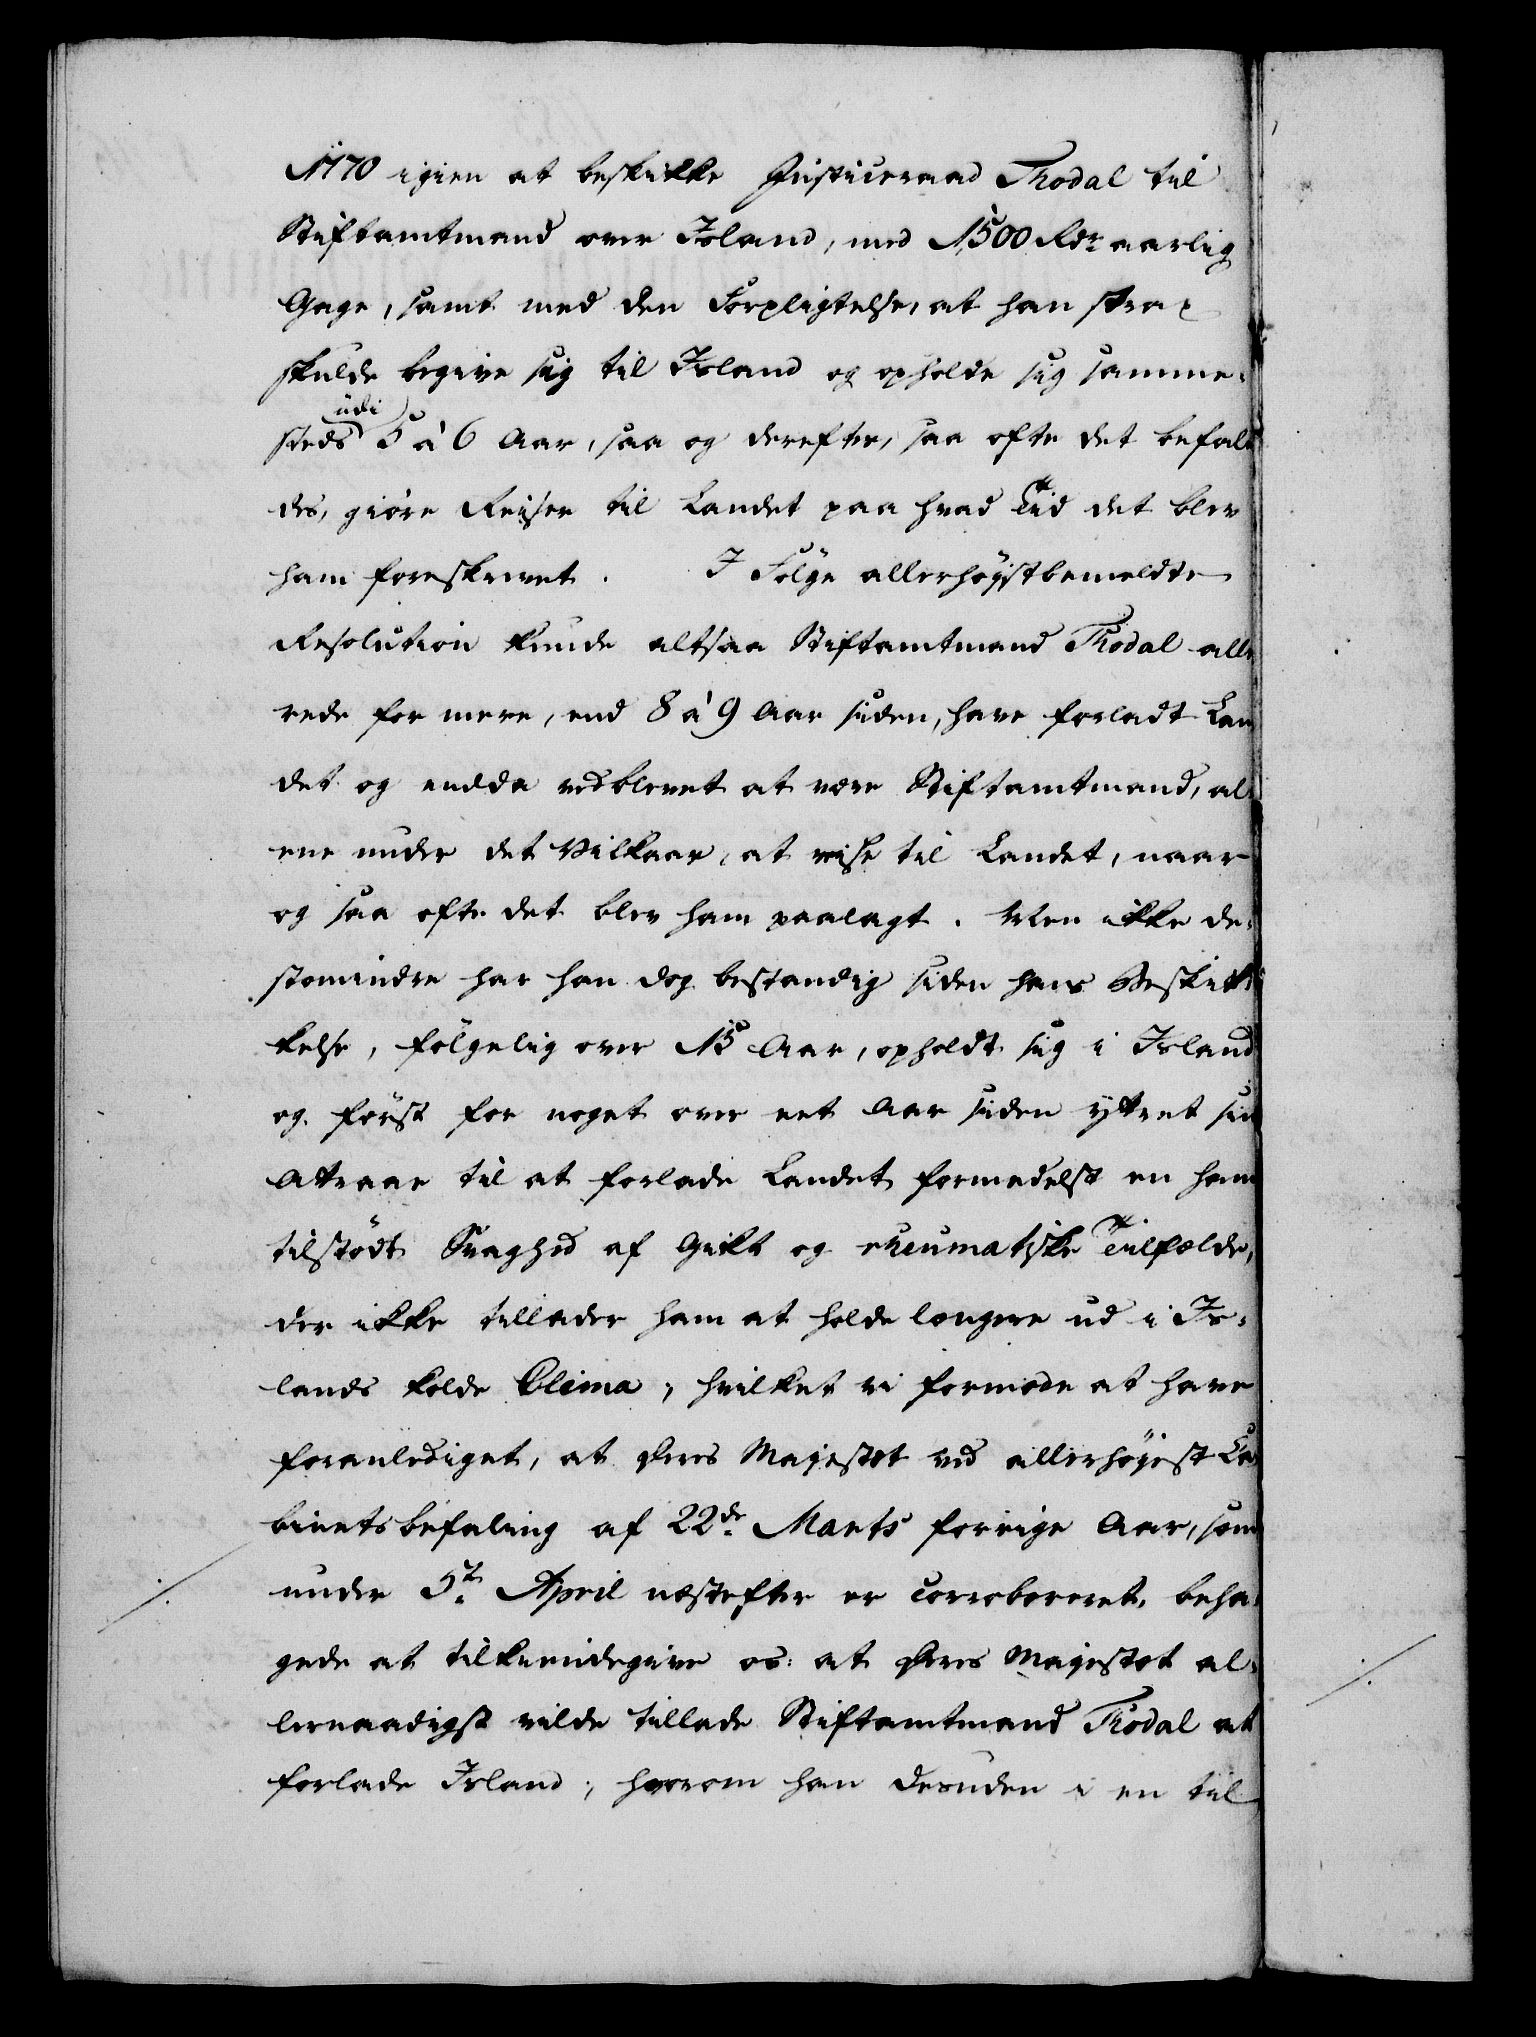 1770 igien at beskikke Justiceraad Thodal til
Stiftamtmand over Island, med 1500 Rdr aarlig
Gage, samt med den Forpligtelse, at han strax
skulde begive sig til Island og opholde sig samme-
steds udi 5 à 6 Aar, saa og derefter, saa ofte det befal
des, giøre Reiser til Landet paa hvad Tid det blev
ham foreskrevet. I Følge allerhøystbemeldte
Resolution kunde altsaa Stiftamtmand Thodal alle
rede for mere, end 8 à 9 Aar siden, have forladt Lan
det og endda vedblevet at være Stiftamtmand, al
ene under det Vilkaar, at reise til Landet, naar
og saa ofte det blev ham paalagt. Men ikke de-
stomindre har han dog bestandig siden hans Beskik-
kelse, følgelig over 15 Aar, opholdt sig i Island
og først for noget over eet Aar siden yttret sin
Attraae til at forlade Landet formedelst en ham
tilstødt Svaghed af Gikt og rheumatiske Tilfælde,
der ikke tillader ham at holde længere ud i Is-
lands kolde Clima; hvilket vi formode at have
foranlediget, at Deres Majestæt ved allerhøjest Ca
binetsbefaling af 22de Marts forrige Aar, som
under 5te April næstefter er corroboreret, beha-
gede at tilkiendegive os: at Deres Majestæt al-
lernaadigst vilde tillade Stiftamtmand Thodal at
forlade Island; hvorom han desuden i en til